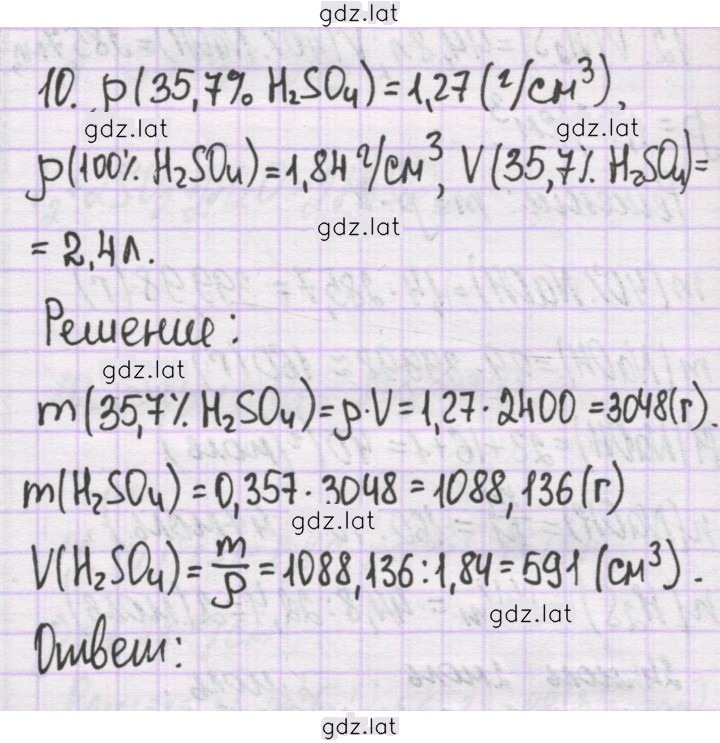 gdz.lat
10. ρ(35,7% H₂SO₄) = 1,27 (г/см³),
gdz.lat gdz.lat
ρ(100% H₂SO₄) = 1,84 г/см³, V(35,7% H₂SO₄) =
gdz.lat
= 2,4 л.
Решение:
gdz.lat
m(35,7% H₂SO₄) = ρ·V = 1,27·2400 = 3048 (г).
m(H₂SO₄) = 0,357·3048 = 1088,136 (г)
gdz.lat
V(H₂SO₄) = m/ρ = 1088,136 : 1,84 = 591 (см³).
gdz.lat
Ответ:
gdz.lat